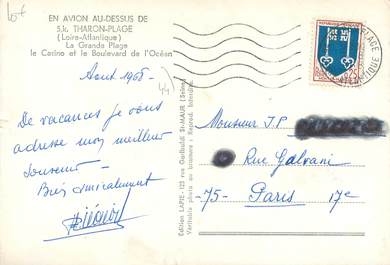 lot
EN AVION AU-DESSUS DE
5.k. THARON-PLAGE
(Loire-Atlantique)
La Grande Plage
le Casino et le Boulevard de l'Océan
Août 1968
(44)
De vacances je vous
adresse mon meilleur
souvenir -
Bien amicalement
Edition LAPIE - 123 rue Garibaldi St-MAUR (Seine)
Véritable photo au bromure - Reprod. interdite.
PLAGE
ATLANTIQUE
Monsieur J.P
Rue Galvani
-75- Paris 17e